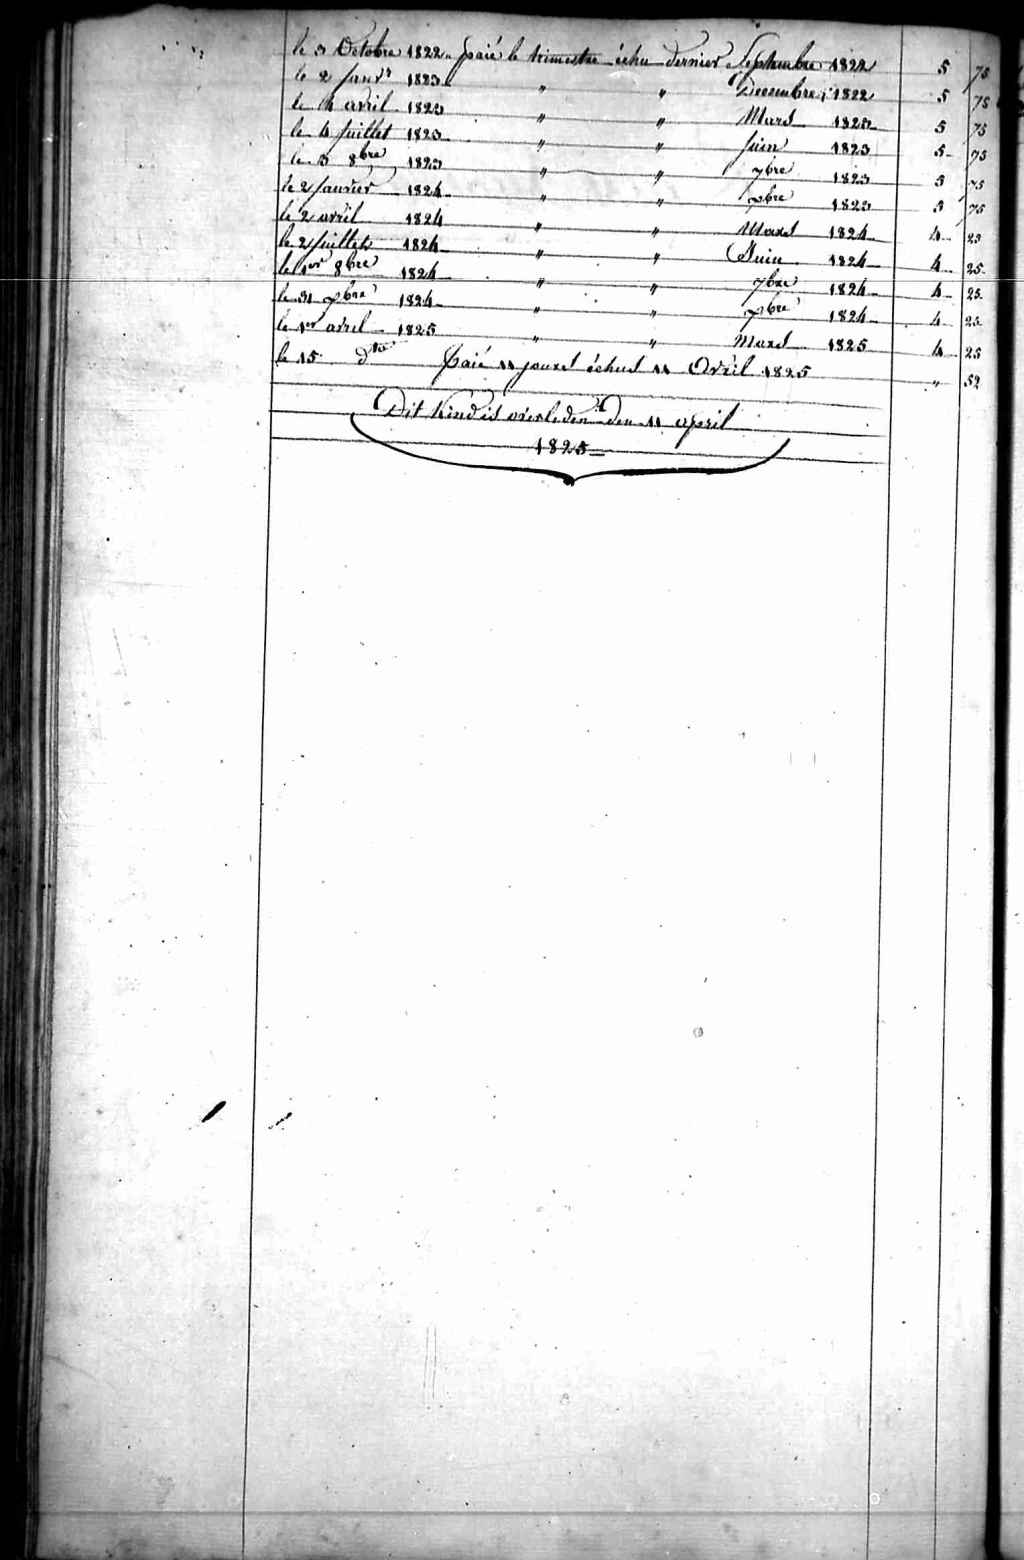 le 3 Octobre 1822 paié le trimestre échu dernier Septembre 1822 5 75
le 2 Janvr 1823 " " Decembre 1822 5 75
le 4 avril 1823 " " Mars 1823 5 75
le 4 Juillet 1823 " " Juin 1823 5 75
le 3 8bre 1823 " " 7bre 1823 5 75
le 2 Janvier 1824 " " xbre 1823 5 75
le 2 avril 1824 " " Mars 1824 4 25
le 2 Juillet 1824 " " Juin 1824 4 25
le 1er 8bre 1824 " " 7bre 1824 4 25
le 31 xbre 1824 " " xbre 1824 4 25
le 1er avril 1825 " " Mars 1825 4 25
le 15 dto Paié 11 jours échus 11 Avril 1825 " 52
Dit Kind is overleden den 11 april
1825